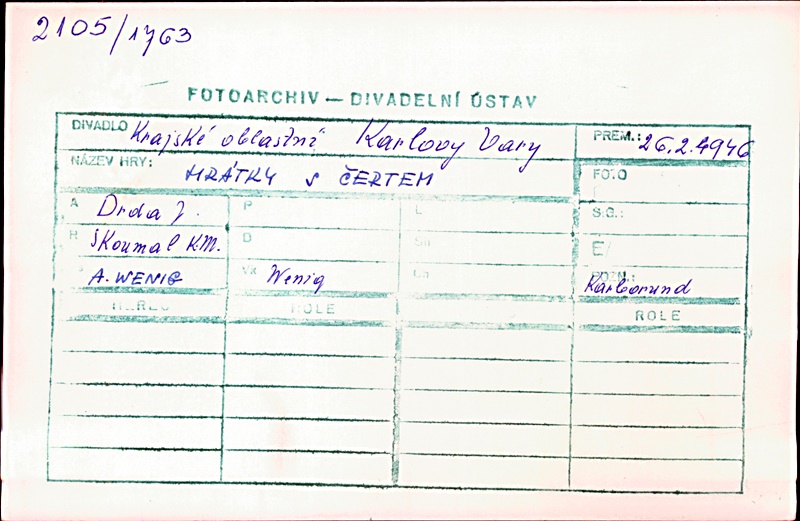 2105/1763
FOTOARCHIV — DIVADELNÍ ÚSTAV
DIVADLO Krajské oblastní Karlovy Vary PREM.: 26.2.1946
NÁZEV HRY: HRÁTKY S ČERTEM FOTO
A Drda J. P L SIG.:
R Skoumal K.M. D Sn E/
A. WENIG Vk Wenig Ch POZN.: Karborund
HEREC ROLE ROLE